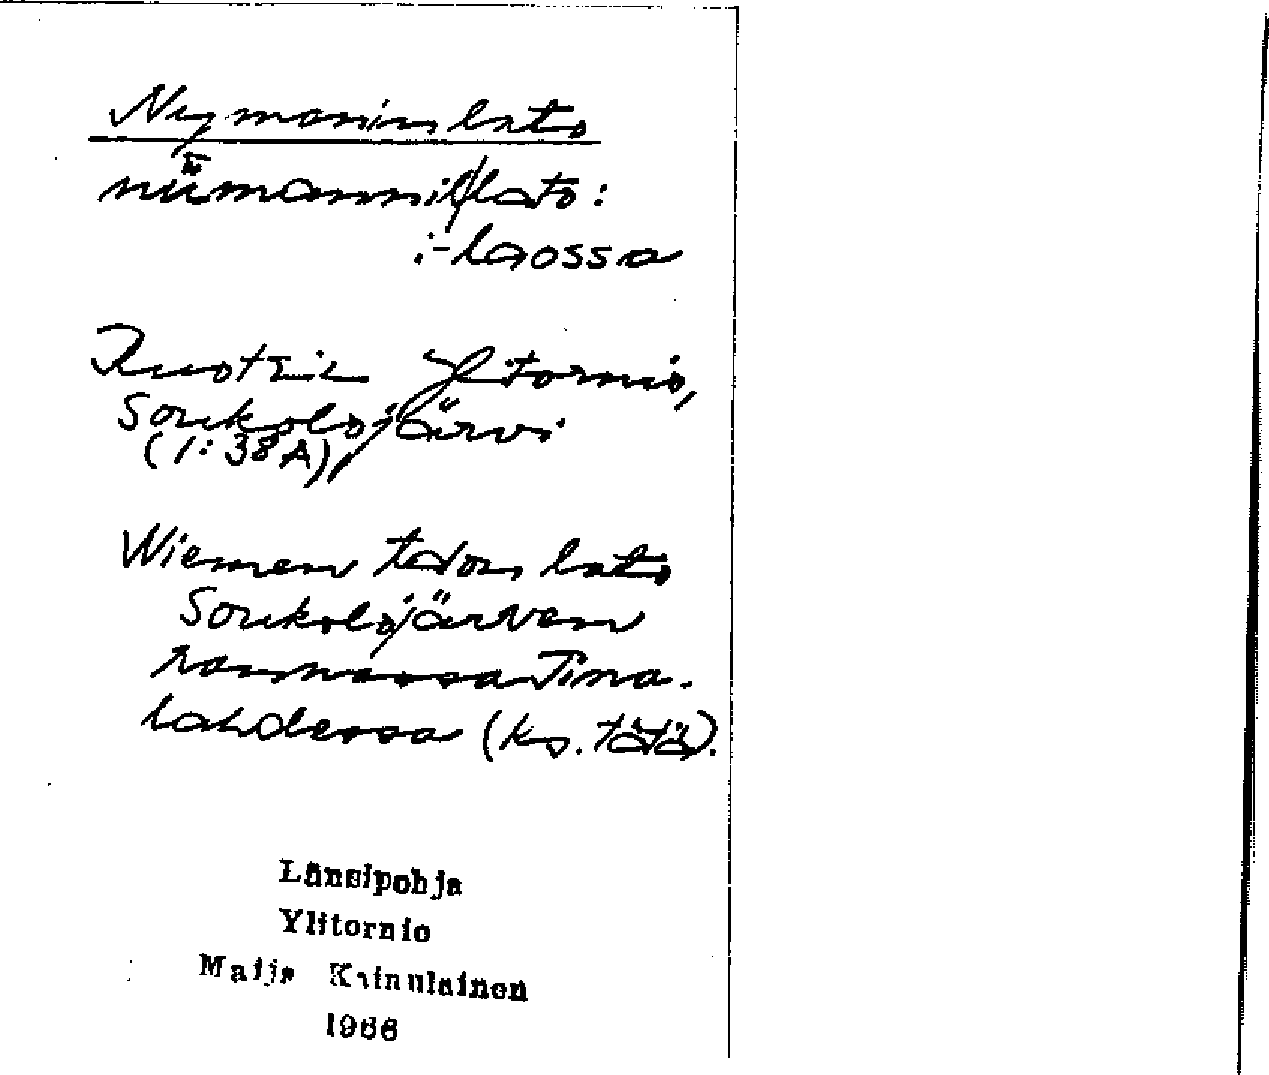 Nymanin lato
niimannillato:
:-laossa
Ruotsin Ylitornio,
Soukolojärvi
(1:38A),
Niemen talon lato
Soukolojärven
rannassa Tina-
lahdessa (ks. tätä).
Länsipohja
Ylitornio
Maija Kainulainen
1966